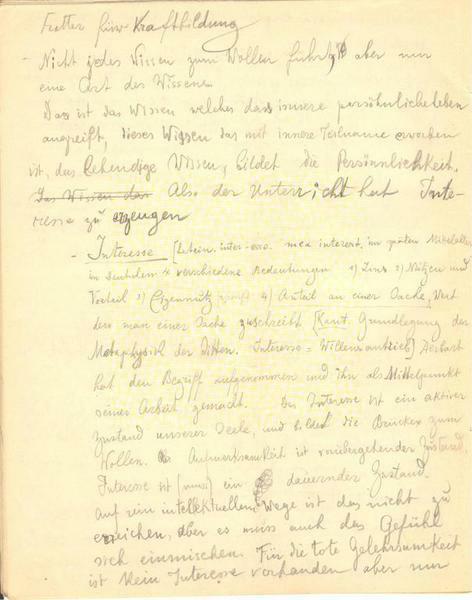 Futter für Kraftbildung
- Nicht jedes Wissen zum Wollen führt, aber nur
eine Art des Wissens.
Das ist das Wissen welches dass innere persöhnliche Leben
angreift, dieses Wissen das mit innere Teilname erworben
ist, das lebendige Wissen, bildet die Persönnlichkeit.
Das Wissen das Also der Unterricht hat Inte-
resse zu erzeugen
- Interesse [Latein. inter-esse. mea interest. im späten Mittelalter
in Deutschem 4 verschiedene Bedeutungen 1) Zins 2) Nützen und
Vorteil 3) Eigennütz 4) Anteil an einer Sache, Wert
den man einer Sache zuschreibt [Kant. Grundlegung der
Metaphysik der Sitten. Interesse = Willensantrieb] Herbart
hat den Begriff aufgenommen und ihn als Mittelpunkt
seiner Arbeit gemacht. Das Interesse ist ein aktiver
Zustand unserer Seele, und bildet die Brücke zum
Wollen. Aufmerksamkeit ist vorübergehender Zustand,
Interesse ist (muss) ein dauernder Zustand.
Auf rein intellektuellem Wege ist das nicht zu
erreichen, aber es muss auch das Gefühl
sich einmischen. Für die tote Gelehrsamkeit
ist kein Interesse vorhanden aber nur